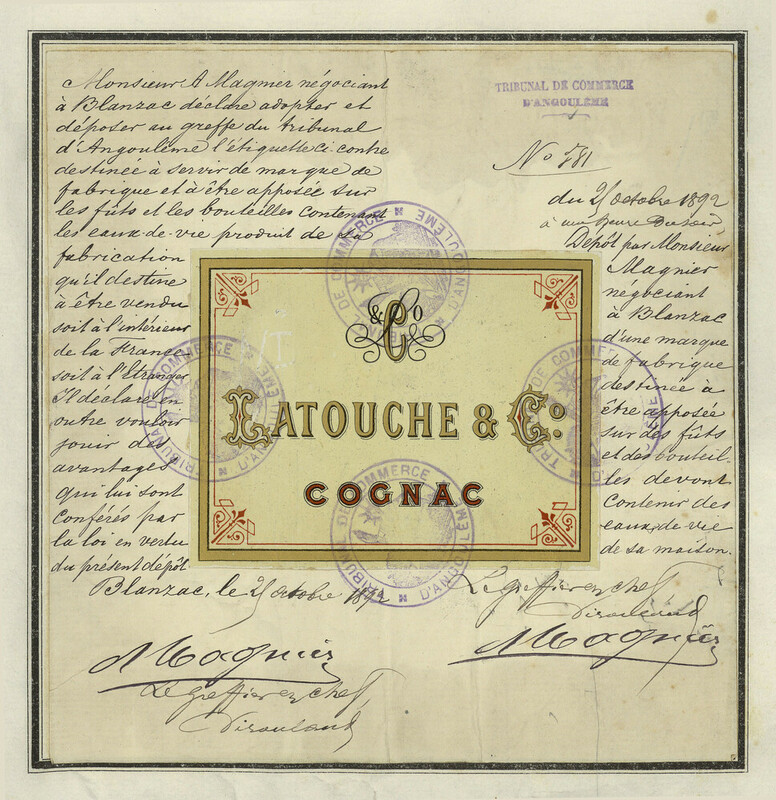 Monsieur A Magnier négociant
à Blanzac déclare adopter et
déposer au greffe du tribunal
d'Angoulême l'étiquette ci-contre
destinée à servir de marque de
fabrique et à être apposée sur
les fûts et les bouteilles contenant
les eaux-de-vie produit de sa
fabrication
qu'il destine
à être vendu
soit à l'intérieur
de la France
soit à l'Etranger
Il déclare en
outre vouloir
jouir des
avantages
qui lui sont
conférés par
la loi en vertu
du présent dépôt
Blanzac, le octobre 1892
A Magnier
Le greffier en chef
TRIBUNAL DE COMMERCE
D'ANGOULÊME
No 781
du octobre 1892
à une heure du soir
Dépôt par Monsieur
Magnier
négociant
à Blanzac
d'une marque
de fabrique
destinée à
être apposée
sur des fûts
et des bouteil-
les devant
contenir des
eaux-de-vie
de sa maison.
Le greffier en chef
A Magnier
& Co
LATOUCHE & Co
COGNAC
TRIBUNAL DE COMMERCE D'ANGOULEME
TRIBUNAL DE COMMERCE D'ANGOULEME
TRIBUNAL DE COMMERCE D'ANGOULEME
TRIBUNAL DE COMMERCE D'ANGOULEME